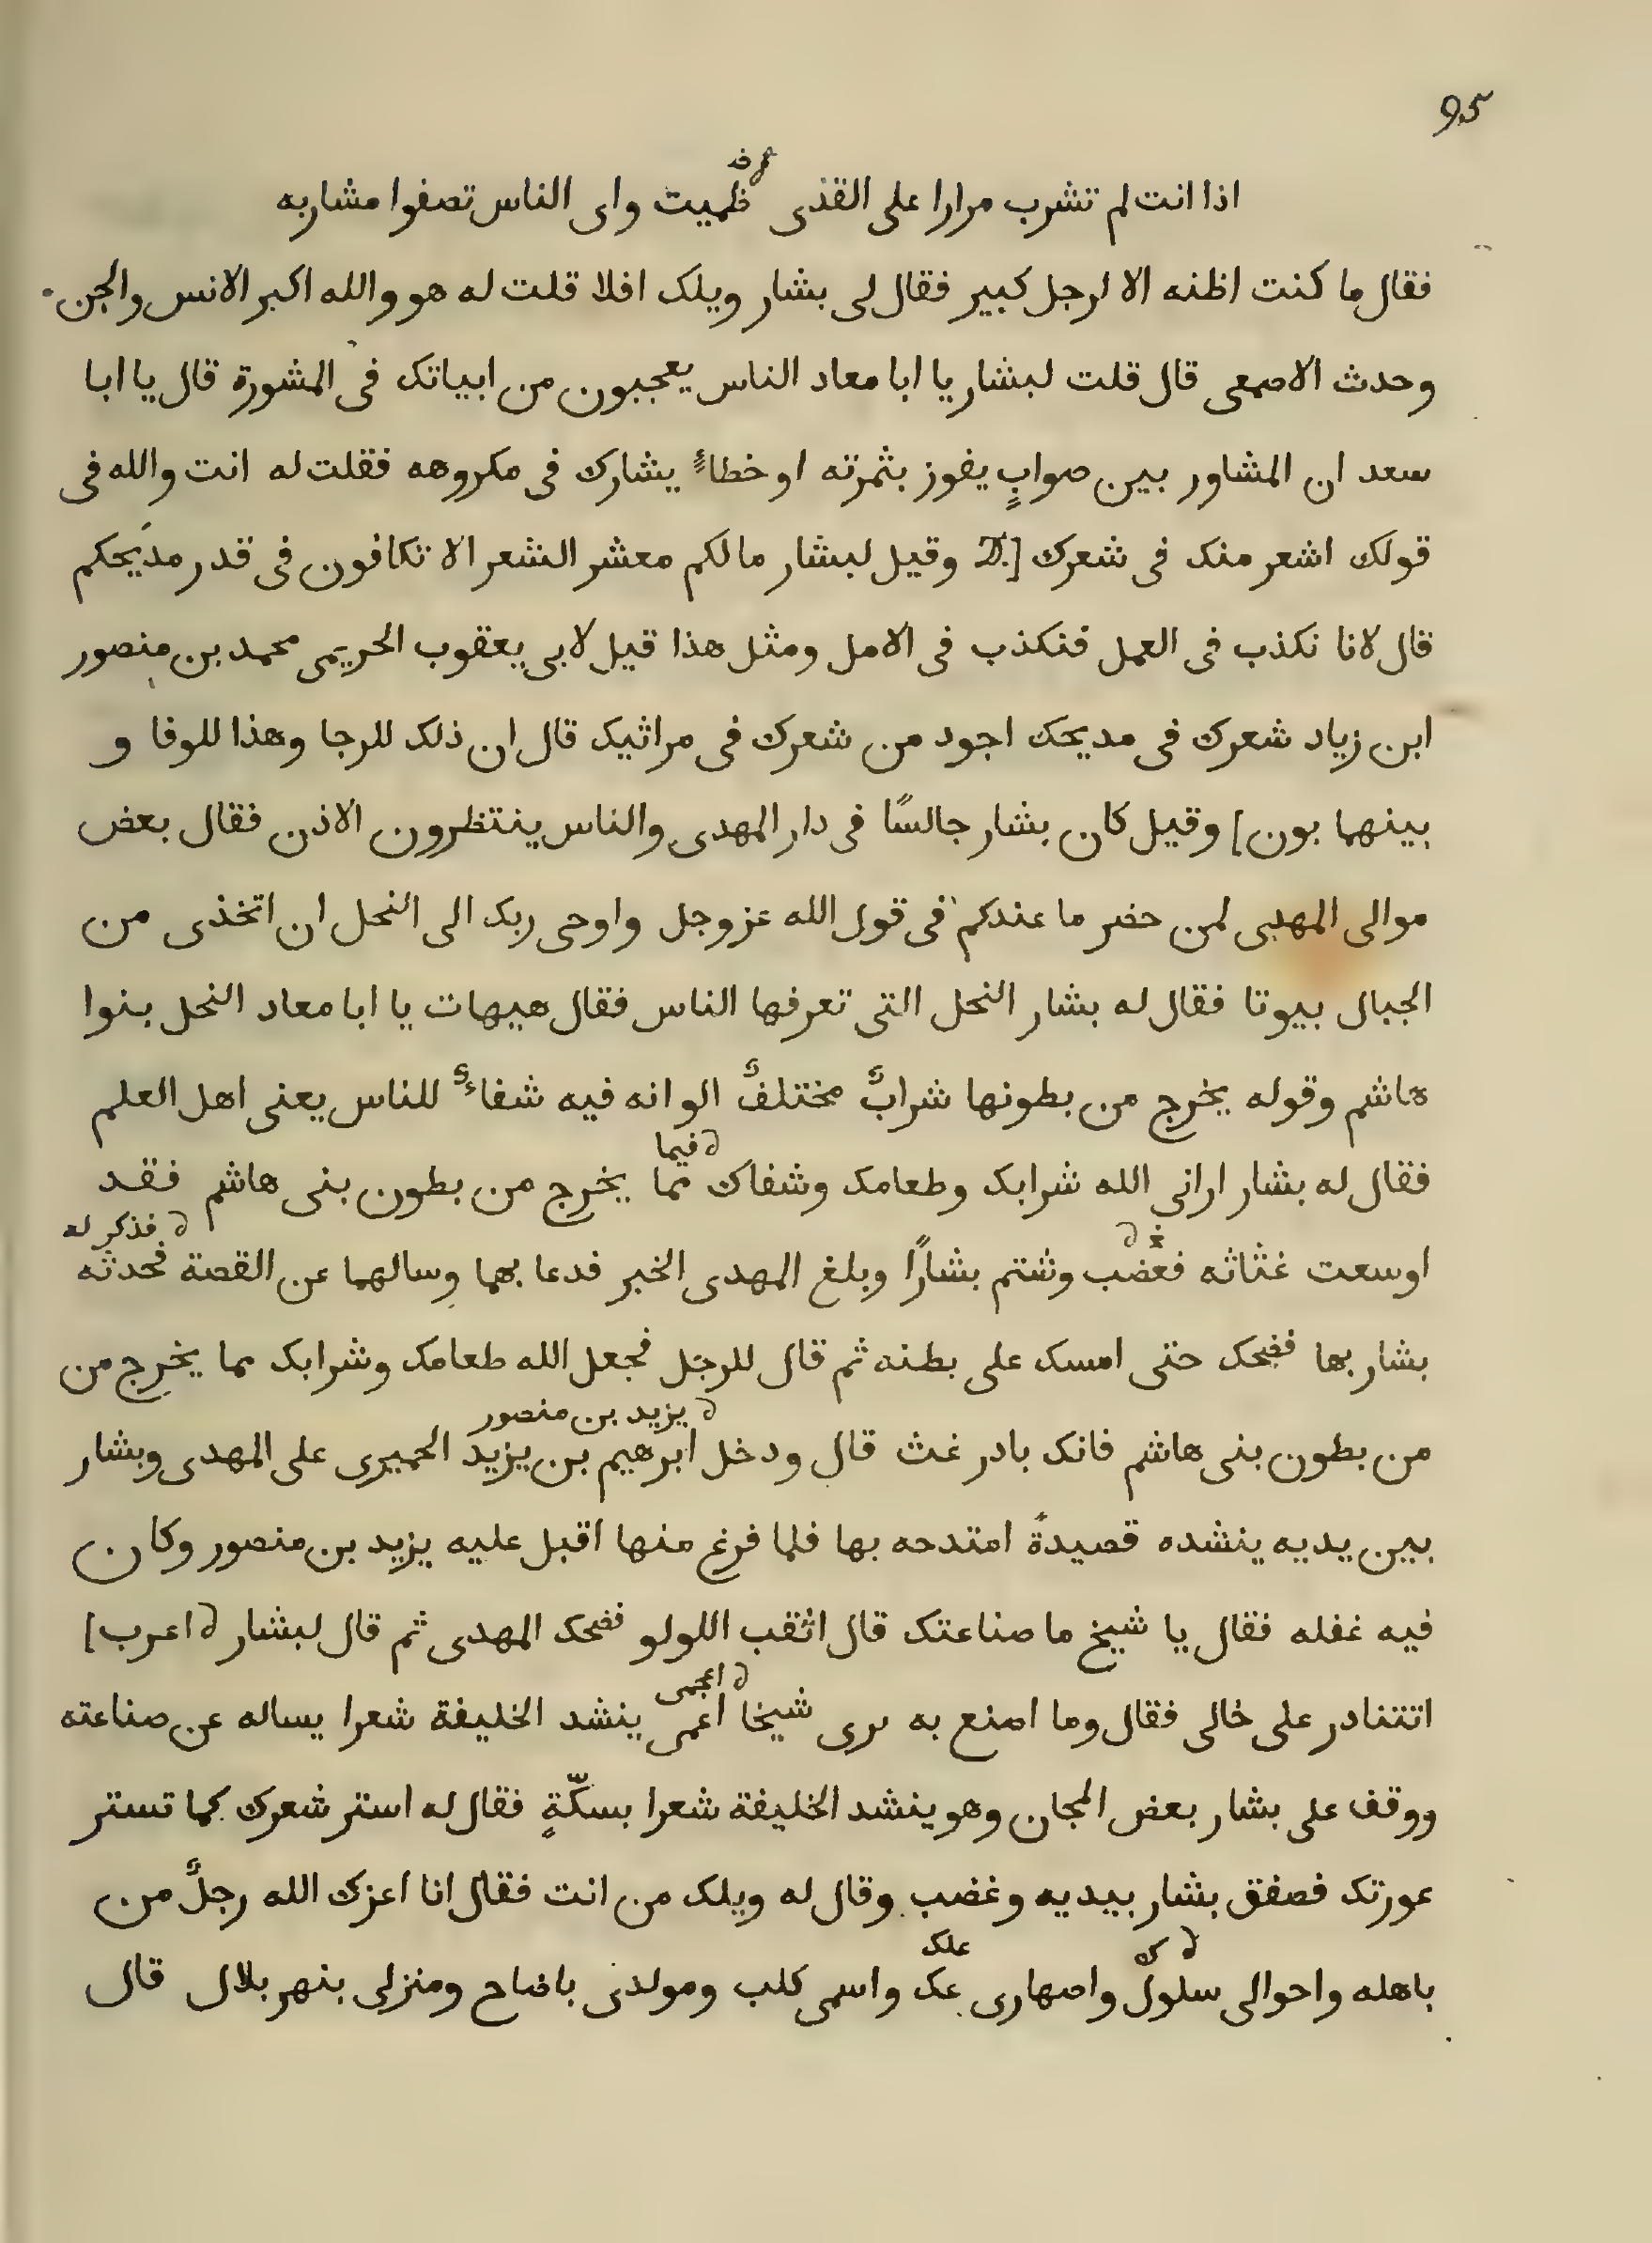 95
اذا انت لم تشرب مرارا على القذى ظميت واى الناس تصفوا مشاربه
فقال ما كنت اظنه الا لرجل كبير فقال لى بشار ويلك افلا قلت له هو والله اكبر الانس والجن
وحدث الاصمعى قال قلت لبشار يا ابا معاد الناس يعجبون من ابياتك فى المشورة قال يا ابا
سعد ان المشاور بين صوابٍ يفوز بثمرته او خطاءٍ يشارك فى مكروهه فقلت له انت والله فى
قولك اشعر منك فى شعرك [ وقيل لبشار مالكم معشر الشعر الا تكافون فى قدر مديحكم
قال لانا نكذب فى العمل فنكذب فى الامل ومثل هذا قيل لابى يعقوب الحريمى محمد بن منصور
ابن زياد شعرك فى مديحك اجود من شعرك فى مراثيك قال ان ذلك للرجا وهذا للوفا و
بينهما بون] وقيل كان بشار جالسًا فى دار المهدى والناس ينتظرون الاذن فقال بعض
موالى المهدى لمن حضر ما عندكم فى قول الله عز وجل واوحى ربك الى النحل ان اتخذى من
الجبال بيوتا فقال له بشار النحل التى تعرفها الناس فقال هيهات يا ابا معاد النحل بنوا
هاشم وقوله يخرج من بطونها شرابٌ مختلفٌ الوانه فيه شفاءٌ للناس يعنى اهل العلم
د فيما
فقال له بشار ارانى الله شرابك وطعامك وشفاك مما يخرج من بطون بنى هاشم فقد
د فذكر له
اوسعت غثاثه فغضب وشتم بشارًا وبلغ المهدى الخبر فدعا بهما وسالهما عن القصة فحدثه
بشار بها فضحك حتى امسك على بطنه ثم قال للرجل فجعل الله طعامك وشرابك مما يخرج من
د يزيد بن منصور
من بطون بنى هاشم فانك بادر غث قال ودخل ابرهيم بن يزيد الحميرى على المهدى وبشار
بين يديه ينشده قصيدةً امتدحه بها فلما فرغ منها اقبل عليه يزيد بن منصور وكان
فيه غفله فقال يا شيخ ما صناعتك قال اثقب اللولو فضحك المهدى ثم قال لبشار د اعرب]
د اعجمى
اتتنادر على خالى فقال وما اصنع به يرى شيخا اعمى ينشد الخليفة شعرا يساله عن صناعته
ووقف على بشار بعض المجان وهو ينشد الخليفة شعرا بسكّةٍ فقال له استر شعرك كما تستر
عورتك فصفق بشار بيديه وغضب وقال له ويلك من انت فقال انا اعزك الله رجلٌ من
علك
باهله واحوالى سلول واصهارى عك واسمى كلب ومولدى باضاح ومنزلى بنهر بلال قال